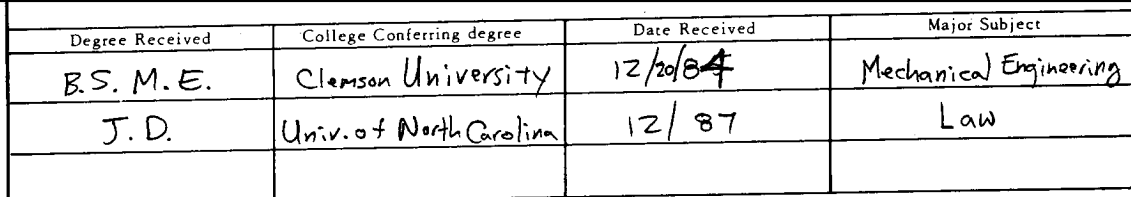 Degree Received College Conferring degree Date Received Major Subject
B.S. M.E. Clemson University 12/20/84 Mechanical Engineering
J.D. Univ. of North Carolina 12/87 Law